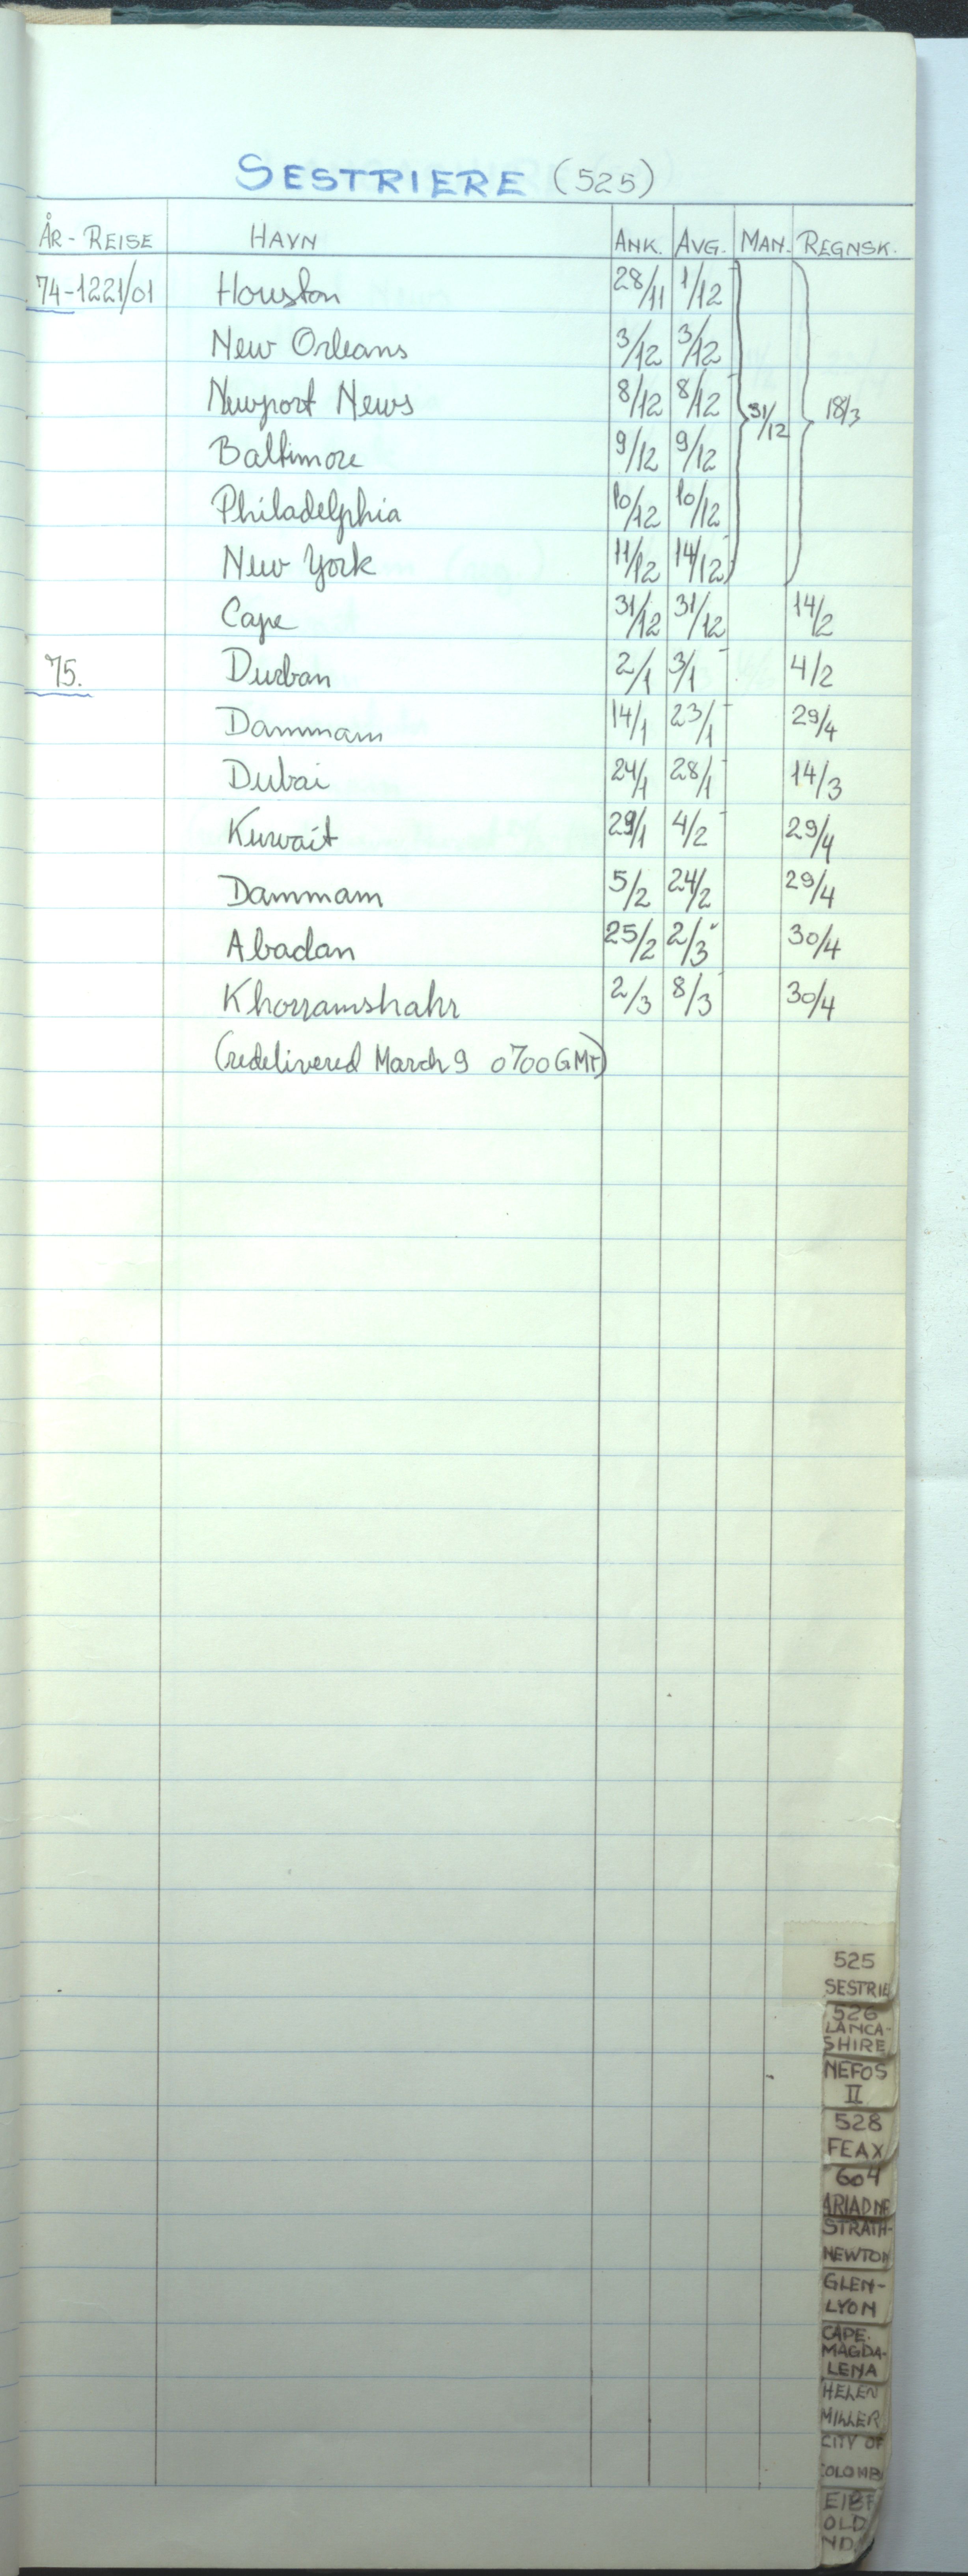 SESTRIERE (525)
ÅR - REISE HAVN ANK. AVG. MAN. REGNSK.
74-1221/01 Houston 28/11 1/12
New Orleans 3/12 3/12
Newport News 8/12 8/12 31/12 18/3
Baltimore 9/12 9/12
Philadelphia 10/12 10/12
New York 11/12 14/12
Cape 31/12 31/12 14/2
75. Durban 2/1 3/1 4/2
Dammam 14/1 23/1 29/4
Dubai 24/1 28/1 14/3
Kuwait 29/1 4/2 29/4
Dammam 5/2 24/2 29/4
Abadan 25/2 2/3 30/4
Khorramshahr 2/3 8/3 30/4
(redelivered March 9 0700 GMT)
525
SESTRIE
526
LANCA-
SHIRE
NEFOS
II
528
FEAX
604
ARIADNE
STRATH-
NEWTON
GLEN-
LYON
CAPE.
MAGDA-
LENA
HELEN
MILLER
CITY OF
COLOMB
OLD